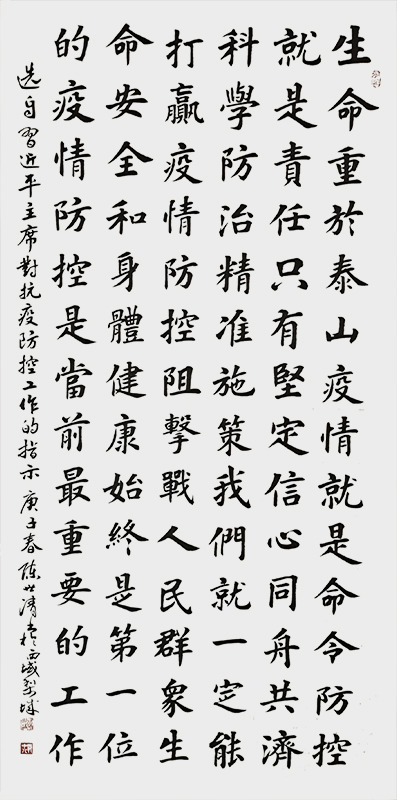 生命重於泰山疫情就是命令防控
就是責任只有堅定信心同舟共濟
科學防治精准施策我們就一定能
打贏疫情防控阻擊戰人民群衆生
命安全和身體健康始終是第一位
的疫情防控是當前最重要的工作
选自習近平主席對抗疫防控工作的指示 庚子春陈世清书於西域梨城